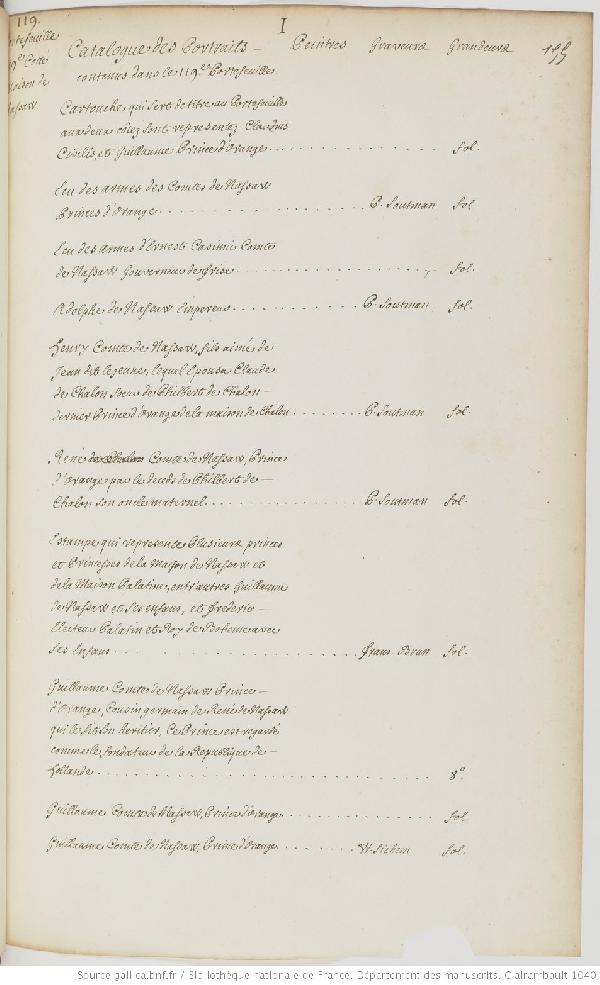 119.
I
Portefeuille
Maison de
Nassaw
Catalogue des Portraits Peintres Graveurs Grandeurs
contenus dans le 119e. Portefeuille.
Cartouche, qui sert de titre au Portefeuille
aux deux côtez sont representez Claudius
Civilis, et Guillaume Prince d'Orange. fol.
Ecu des armes des Comtes de Nassaw
Princes d'Orange. P. Soutman fol.
Ecu des Armes d'Ernest Casimir Comte
de Nassaw Gouverneur de Frise. fol.
Adolphe de Nassaw Empereur. P. Soutman fol.
Henry Comte de Nassaw, fils aîné de
Jean dit le jeune, lequel épousa Claude
de Chalon sœur de Philbert de Chalon
dernier Prince d'Orange de la maison de Chalon. P. Soutman fol.
René de Chalon Comte de Nassaw, Prince
d'Orange par le deceds de Philbert de
Chalon son oncle maternel. P. Soutman fol.
Estampe qui represente Plusieurs princes
et Princesses de la Maison de Nassaw et
de la Maison Palatine, entr'autres Guillaume
de Nassaw et ses enfans, et Frederic
Electeur Palatin et Roy de Boheme avec
ses Enfans. Frans Brun fol.
Guillaume Comte de Nassaw Prince
d'Orange, Cousin germain de René de Nassaw
qui le fit son heritier, Ce Prince est regardé
comme le fondateur de la Republique de
Hollande. 8o.
Guillaume Comte de Nassaw, Prince d'Orange. fol.
Guillaume Comte de Nassaw, Prince d'Orange. W. Sichem fol.
Source gallica.bnf.fr / Bibliothèque nationale de France. Département des manuscrits. Clairambault 1040